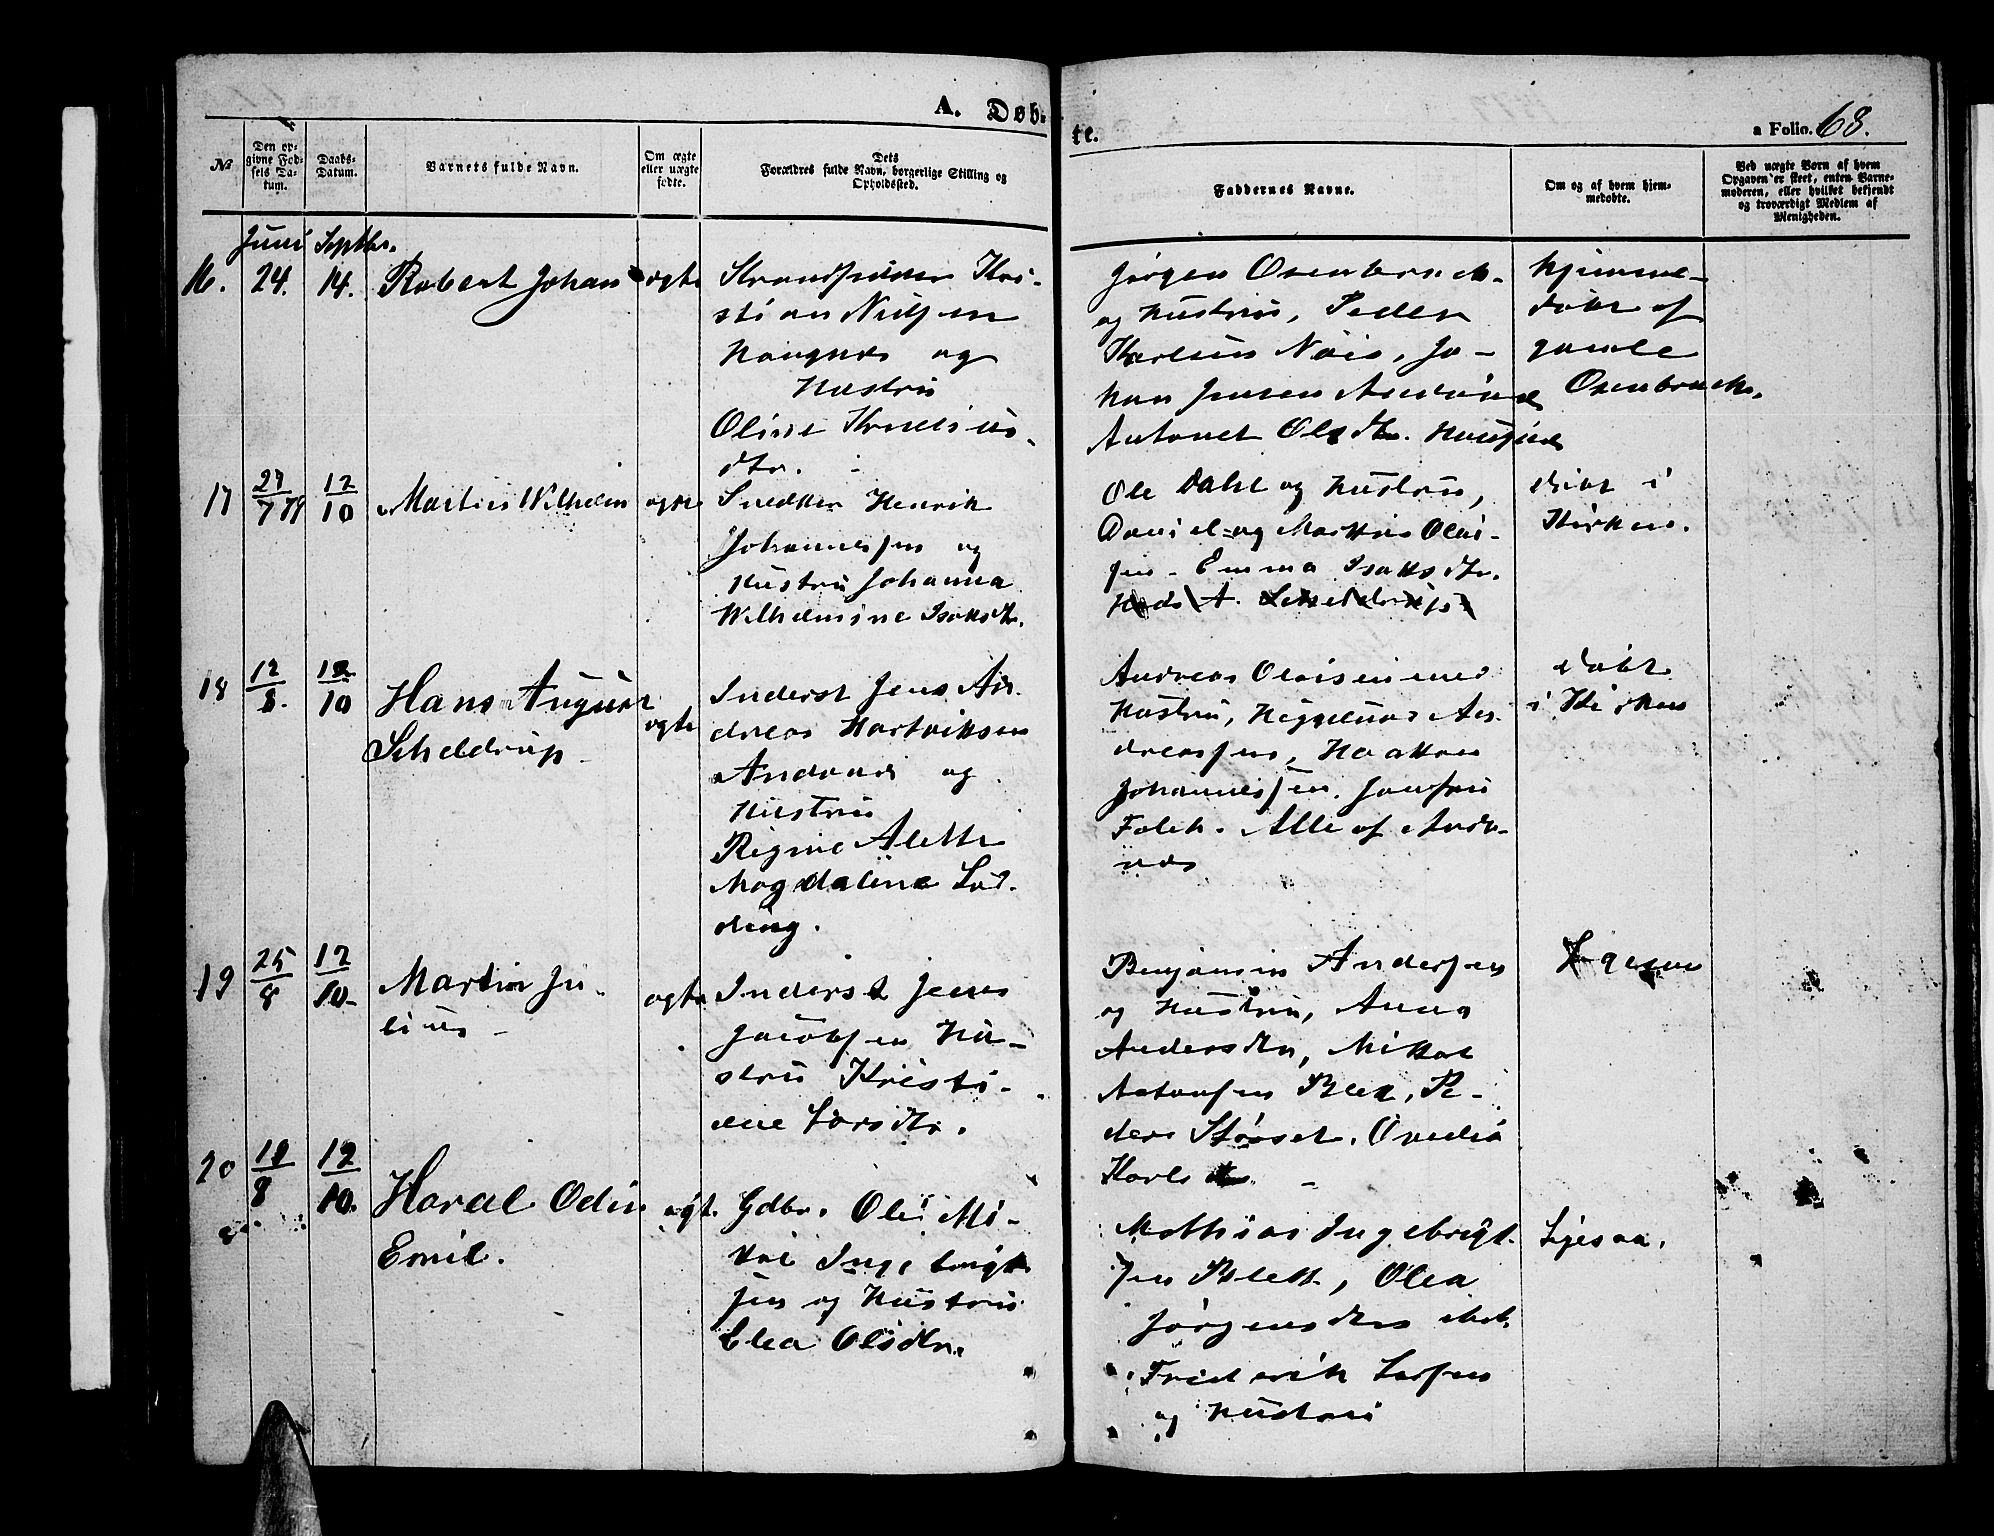 A. Døb-
te.
a Folio. 68.
№
Den op-
givne Fød-
sels Da-
tum.
Daabs-
Datum.
Barnets fulde Navn.
Om ægte
eller uægte
fødte.
Dets
Forældres fulde Navn, borgerlige Stilling og
Opholdssted.
Faddernes Navne.
Om og af hvem hjem-
medøbte.
Ved uægte Børn af hvem
Opgaven er skeet, enten Barne-
moderen, eller hvilket bekjendt
og troværdigt Medlem af
Menigheden.
Juni Septbr.
16. 24. 14. Robert Johan ægte
Kri-
stian Nilsen
Haugnæs og
Hustru
Oline Kornelius-
dtr.
Jørgen Osenbroch
og Hustru, Peder
Karlsen Nøis, Jo-
han Jensen Andenæs
Antonet Olsdtr. Haugnæs
hjemme-
døbt af
gamle
Osenbroch.
17 27/7 79 12/10 Martin Wilhelm ægte
Snedker Henrik
Johannessen og
Hustru Johanna
Wilhelmine Isaksdtr.
Ole Dahl og Hustru,
Daniel og Martin Olai-
sen - Emma Isaksdtr.
Hads A. Scheldrup
døbt i
Kirken.
18 12/8. 12/10 Hans August
Scheldrup
ægte
Inderst Jens An-
dreas Hartviksen
Andenæs og
Hustru
Regine Alette
Magdaline Lod-
ding.
Andreas Olaisen med
Hustru, Heggelund An-
dreassen, Haakon
Johannessen. Jonsen
Falch. Alle af Ande-
næs
døbt
i Kirken
19 25/8 12/10. Martin Ju-
lius -
ægte
Inderst Jens
Jacobsen Hu-
stru Kristi-
ane Larsdtr.
Benjamin Andersen
og Hustru, Anna
Andersdtr, Mikal
Antonsen Bleik, Pe-
der Støaset, Ovedia
Karlsdtr. -
Ligesaa
20 18/8 12/10. Harald Odin
Emil.
ægte
Gdbr. Ole Mi-
kal Ingebrigt-
sen og Hustru
Elea Olsdtr.
Mathias Ingebrigt-
sen Bleik, Olea
Jørgensdtr ibd.
Frederik Larsen
og Hustru
Ligesaa.